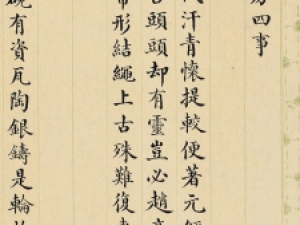 四事
汗青懷提較便著元
頭頭却有靈豈必趙
形結繩上古殊難復
硯有資瓦陶銀鑄是輪